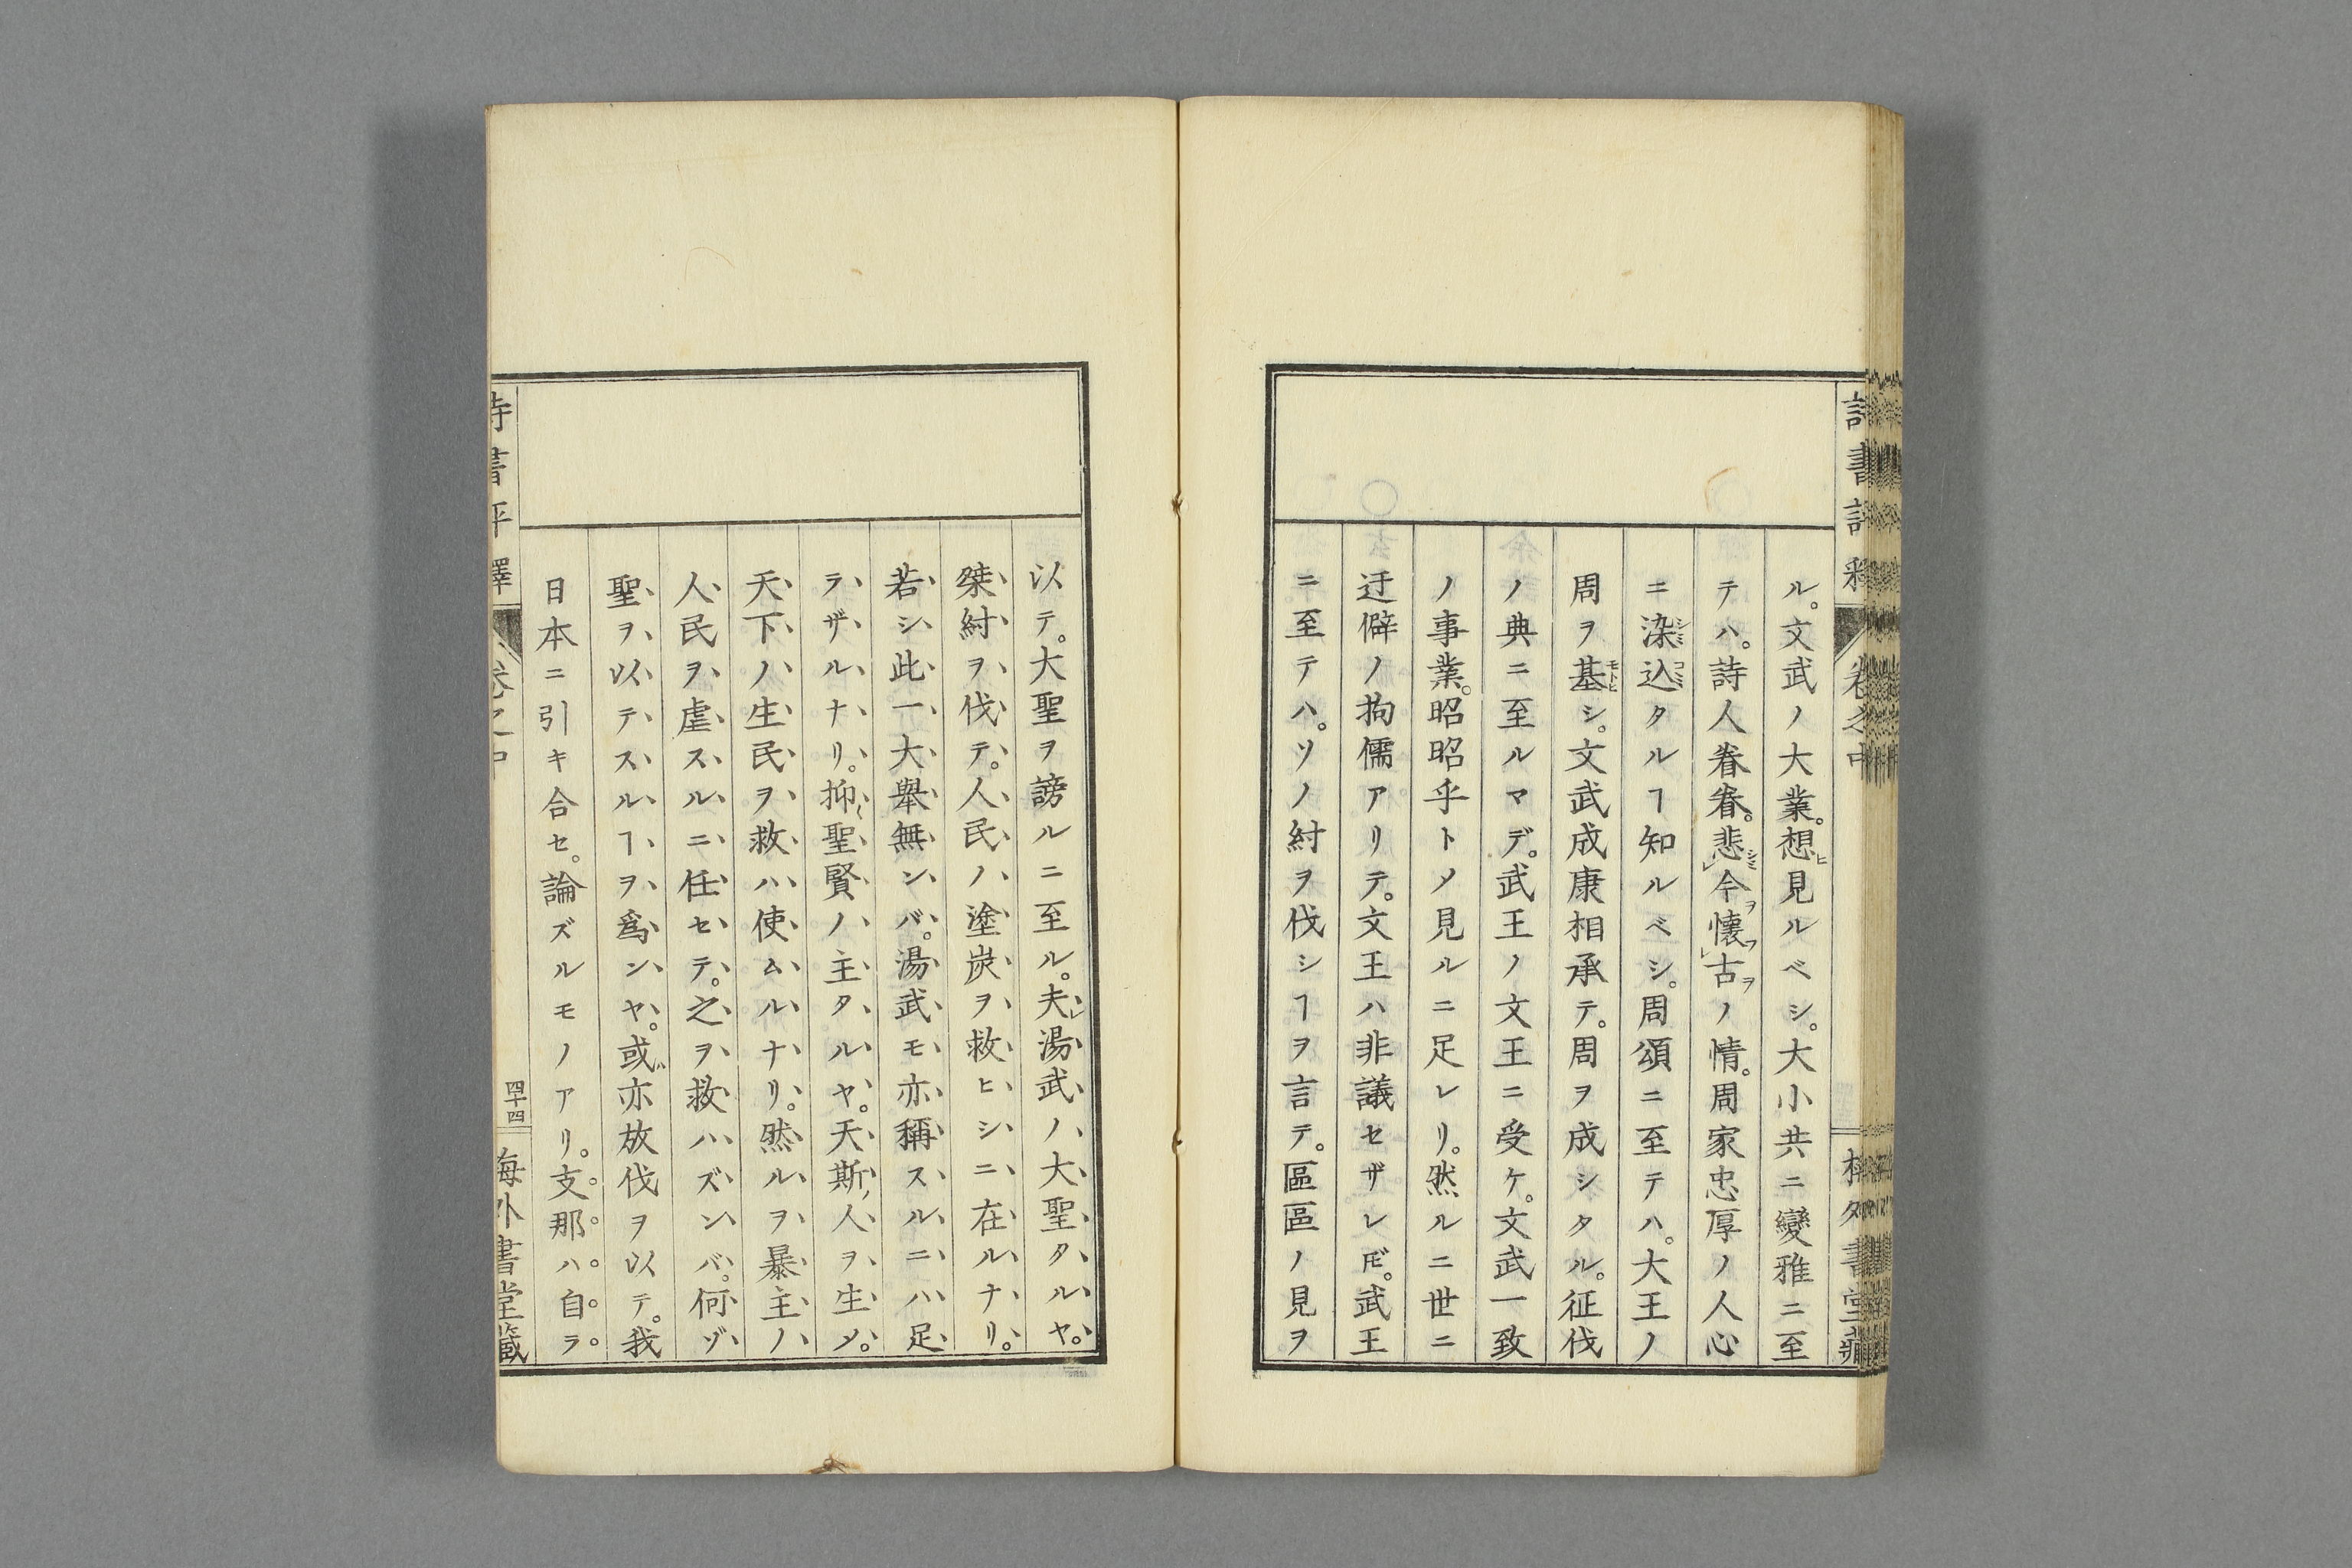 ル。文武ノ大業。想ヒ見ルベシ。大小共ニ變雅ニ至
テハ。詩人眷眷。悲シミ㆑今ヲ懷フ㆑古ヲノ情。周家忠厚ノ人心
ニ染込タルヿ知ルベシ。周頌ニ至テハ。大王ノ
周ヲ基シ。文武成康相承テ。周ヲ成シタル。征伐
ノ典ニ至ルマデ。武王ノ文王ニ受ケ。文武一致
ノ事業。昭昭乎トメ見ルニ足レリ。然ルニ世ニ
迂僻ノ拘儒アリテ。文王ハ非議セザレ𪜈。武王
ニ至テハ。ソノ紂ヲ伐シヿヲ言テ。區區ノ見ヲ
以テ。大聖ヲ謗ルニ至ル。夫レ湯武ノ大聖タルヤ。
桀紂ヲ伐テ。人民ノ塗炭ヲ救ヒシニ在ルナリ。
若シ此一大舉無ンバ。湯武モ亦稱スルニハ足
ラザルナリ。抑〻聖賢ノ主タルヤ。天斯ノ人ヲ生メ。
天下ノ生民ヲ救ハ使ムルナリ。然ルヲ暴主ノ
人民ヲ虐スルニ任セテ。之ヲ救ハズンバ。何ゾ
聖ヲ以テスルヿヲ爲ンヤ。或ハ亦放伐ヲ以テ。我
日本ニ引キ合セ。論ズルモノアリ。支那ハ自ラ
詩書評釋
卷之中
四十四
海外書堂藏